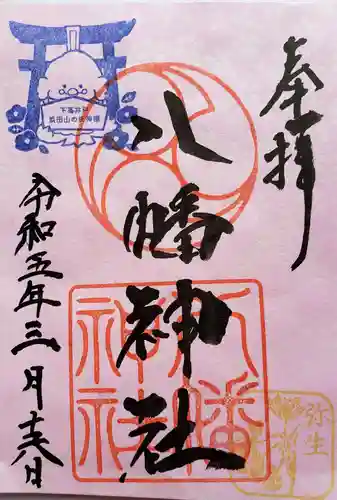 奉拝
八幡神社
八幡
神社
令和五年三月十八日
下高井戸
浜田山の氏神様
弥生